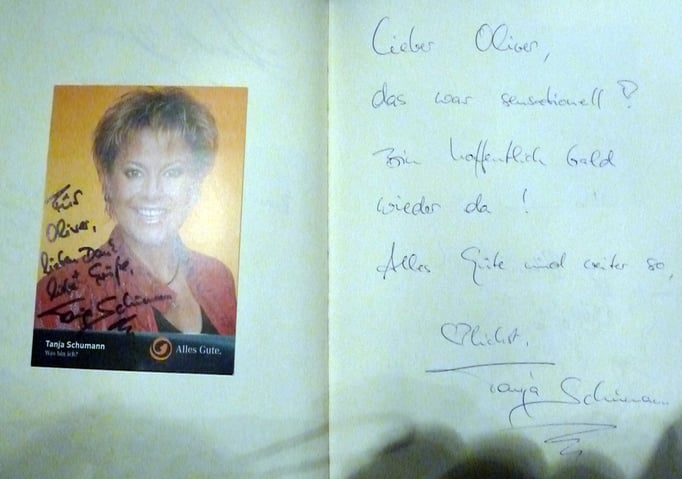 Für
Oliver,
lieben Dank
liebe Grüße,
Tanja Schumann
Tanja Schumann
Was bin ich?
Alles Gute.
Lieber Oliver,
das war sensationell !
Bin hoffentlich bald
wieder da !
Alles Gute und weiter so,
♡lichst,
Tanja Schumann